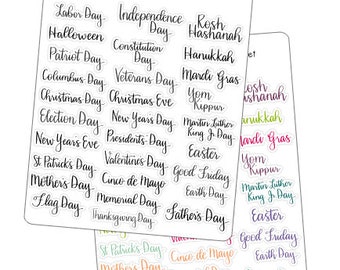 Labor Day
Independence
Day
Rosh
Hashanah
Halloween
Constitution
Day
Hanukkah
Patriot Day
Columbus Day
Veterans Day
Mardi Gras
Christmas Day
Christmas Eve
Yom
Kippur
Election Day
New Years Day
Martin Luther
King Jr Day
New Years Eve
Presidents Day
Easter
St Patricks Day
Valentines Day
Good Friday
Mothers Day
Cinco de Mayo
Earth Day
Flag Day
Memorial Day
Father's Day
Thanksgiving Day
Rosh
Hashanah
Hanukkah
Mardi Gras
Yom
Kippur
Martin Luther
King Jr Day
Easter
Good Friday
Earth Day
St Patrick's Day
Cinco de Mayo
Mothers Day